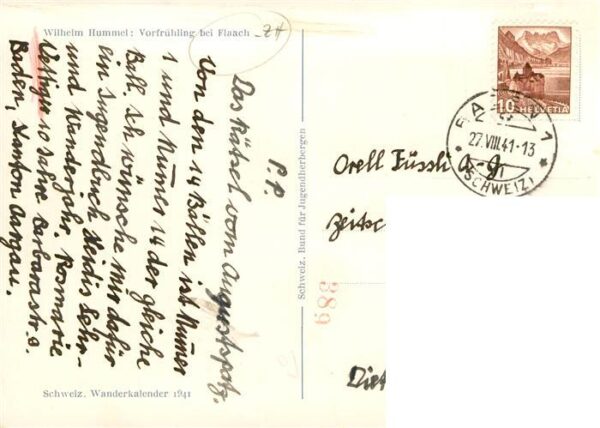 Wilhelm Hummel: Vorfrühling bei Flaach
ZH
P.P.
Das Rätsel vom Augustspatz.
Von den 14 Bällen ist Numer
1 und Numer 14 der gleiche
Ball. Ich wünsche mir dafür
ein Jugendbuch Heidis Lehr-
und Wanderjahr. Rosmarie
10 Jahre Barbarastr. 9.
Baden, Kanton Aargau.
Schweiz. Wanderkalender 1941
Schweiz. Bund für Jugendherbergen
389
10 HELVETIA
BADEN 1
27.VIII.41-13
(SCHWEIZ)
Orell Füssli A-G.
Zeitsc
Diet